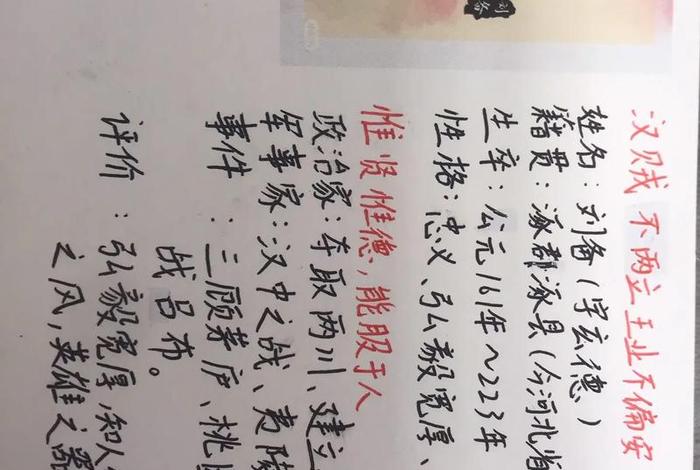 刘备
汉贼不两立王业不偏安
姓名:刘备(字玄德)
籍贯:涿郡涿县(今河北省
生卒:公元161年~223年
性格:忠义、弘毅宽厚、
惟贤惟德,能服于人
政治家:夺取两川、建立
军事家:汉中之战、夷陵
事件:三顾茅庐、桃园
战吕布。
评价:弘毅宽厚,知人
之风,英雄之器